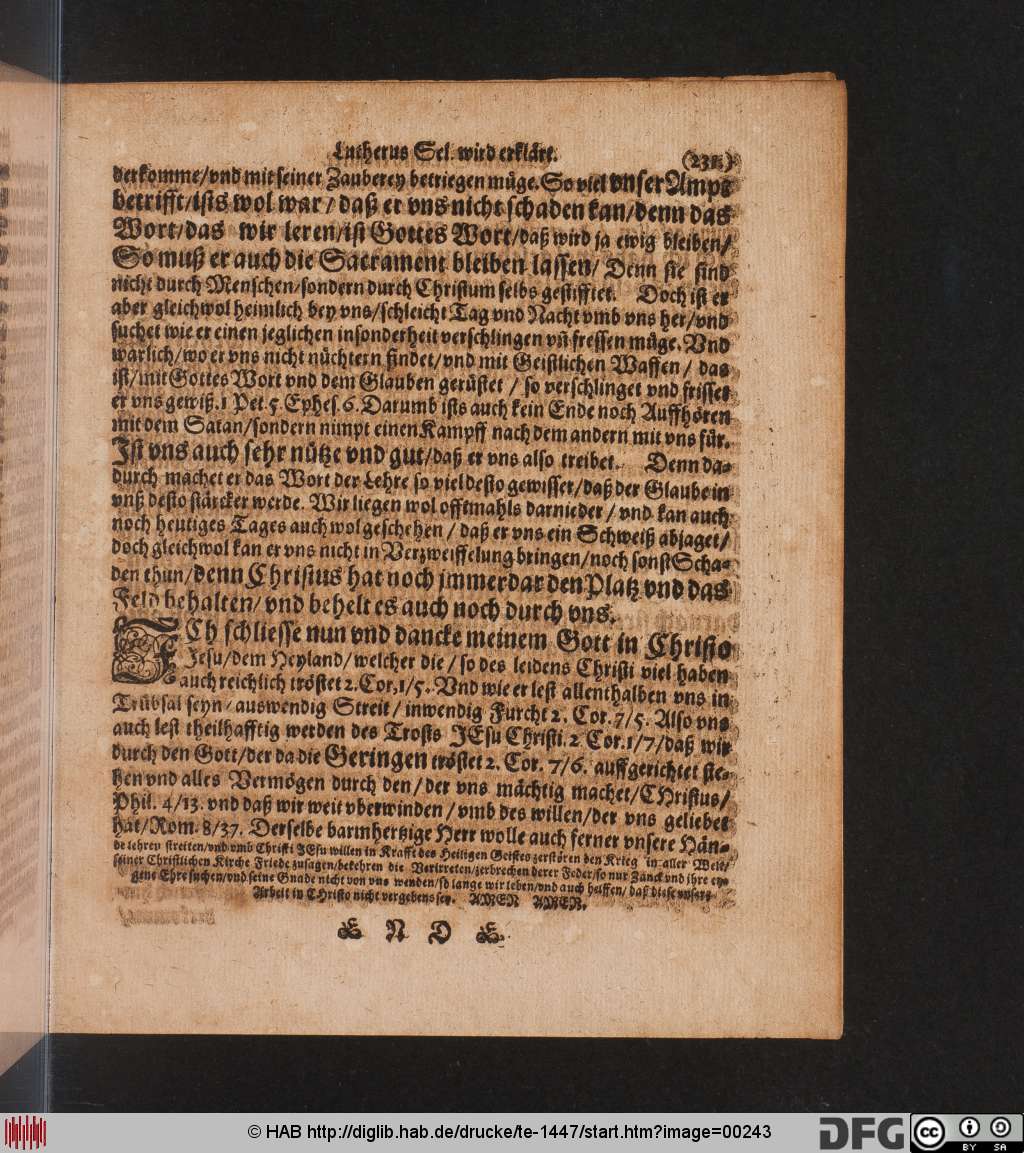 Lutherus Sel. wird erklärt.
(231.)
derkomme/vnd mit seiner Zauberey betriegen müge. So viel vnser Ampt
betrifft/ists wol war/ daß er vns nicht schaden kan/denn das
Wort/das wir leren/ist Gottes Wort/daß wird ja ewig bleiben/
So muß er auch die Sacrament bleiben lassen/ Denn sie sind
nicht durch Menschen/sondern durch Christum selbs gestifftet. Doch ist er
aber gleichwol heimlich bey vns/schleicht Tag vnd Nacht vmb vns her/vnd
suchet wie er einen jeglichen insonderheit verschlingen vñ fressen müge. Vnd
warlich/wo er vns nicht nüchtern findet/vnd mit Geistlichen Waffen/ das
ist/mit Gottes Wort vnd dem Glauben gerüstet/ so verschlinget vnd frisset
er vns gewiß. 1 Pet. 5. Ephes. 6. Darumb ists auch kein Ende noch Auffhören
mit dem Satan/sondern nimpt einen Kampff nach dem andern mit vns für.
Ist vns auch sehr nütze vnd gut/daß er vns also treibet. Denn da-
durch machet er das Wort der Lehre so viel desto gewisser/daß der Glaube in
vnß desto stärcker werde. Wir liegen wol offtmahls darnieder/ vnd kan auch
noch heutiges Tages auch wol geschehen/ daß er vns ein Schweiß abjaget/
doch gleichwol kan er vns nicht in Verzweiffelung bringen/noch sonst Scha-
den thun/denn Christus hat noch jmmerdar den Platz vnd das
Feld behalten/ vnd behelt es auch noch durch vns.
ICh schliesse nun vnd dancke meinem Gott in Christo
Jesu/dem Heyland/welcher die/ so des leidens Christi viel haben
auch reichlich tröstet 2. Cor. 1/5. Vnd wie er lest allenthalben vns in
Trübsal seyn/ auswendig Streit/ inwendig Furcht 2. Cor. 7/5. Also vns
auch lest theilhafftig werden des Trosts JEsu Christi. 2 Cor. 1/7/daß wir
durch den Gott/der da die Geringen tröstet 2. Cor. 7/6. auffgerichtet ste-
hen vnd alles Vermögen durch den/der vns mächtig machet/CHristus/
Phil. 4/13. vnd daß wir weit vberwinden/ vmb des willen/der vns geliebet
hat/Rom. 8/37. Derselbe barmhertzige Herr wolle auch ferner vnsere Hän-
de lehren streiten/vnd vmb Christi JEsu willen in Krafft des Heiligen Geistes zerstören den Krieg in aller Welt/
seiner Christlichen Kirche Friede zusagen/bekehren die Verirreten/zerbrechen derer Feder/so nur Zanck vnd jhre ey-
gene Ehre suchen/vnd seine Gnade nicht von vns wenden/so lange wir leben/vnd auch helffen/ daß diese vnsere
Arbeit in CHristo nicht vergebens sey. AMEN AMEN.
E N D E.
© HAB http://diglib.hab.de/drucke/te-1447/start.htm?image=00243
DFG
cc BY SA